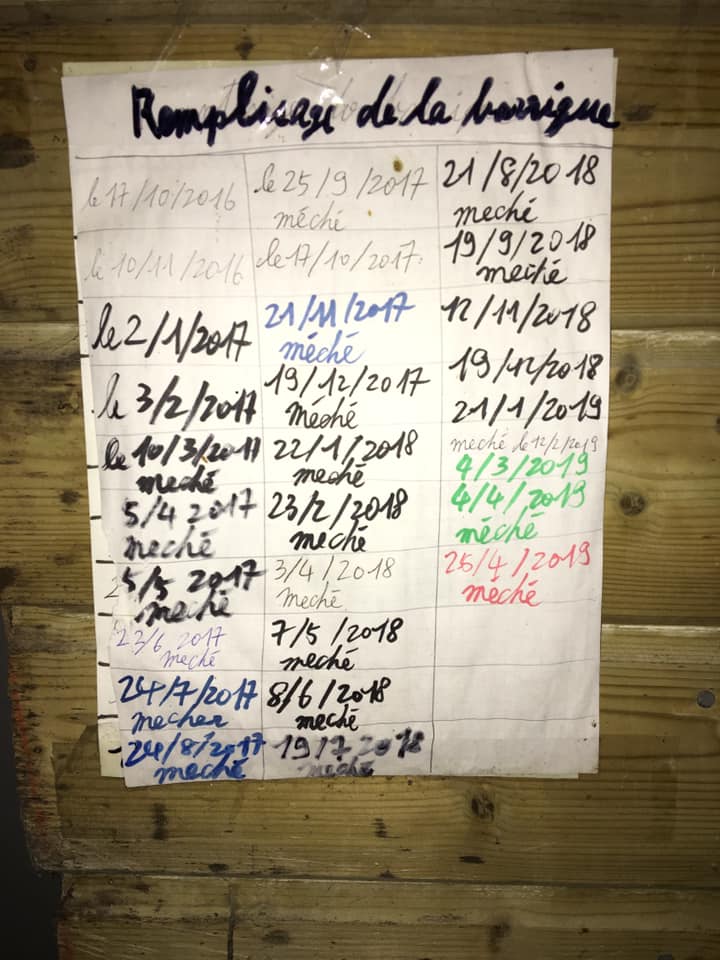 Remplisage de la barrique
le 17/10/2016
le 10/11/2016
le 2/1/2017
le 3/2/2017
le 10/3/2017
meché
5/4 2017
meché
5/5 2017
meché
23/6 2017
meché
24/7/2017
mecher
24/8/2017
meché
le 25/9/2017
méché
le 17/10/2017
21/11/2017
méché
19/12/2017
Méché
22/1/2018
meché
23/2/2018
meché
3/4/2018
meché
7/5/2018
meché
8/6/2018
meché
19/7 2018
meché
21/8/2018
meché
19/9/2018
meché
12/11/2018
19/12/2018
21/1/2019
meché le 12/2/2019
4/3/2019
4/4/2019
méché
25/4/2019
meché